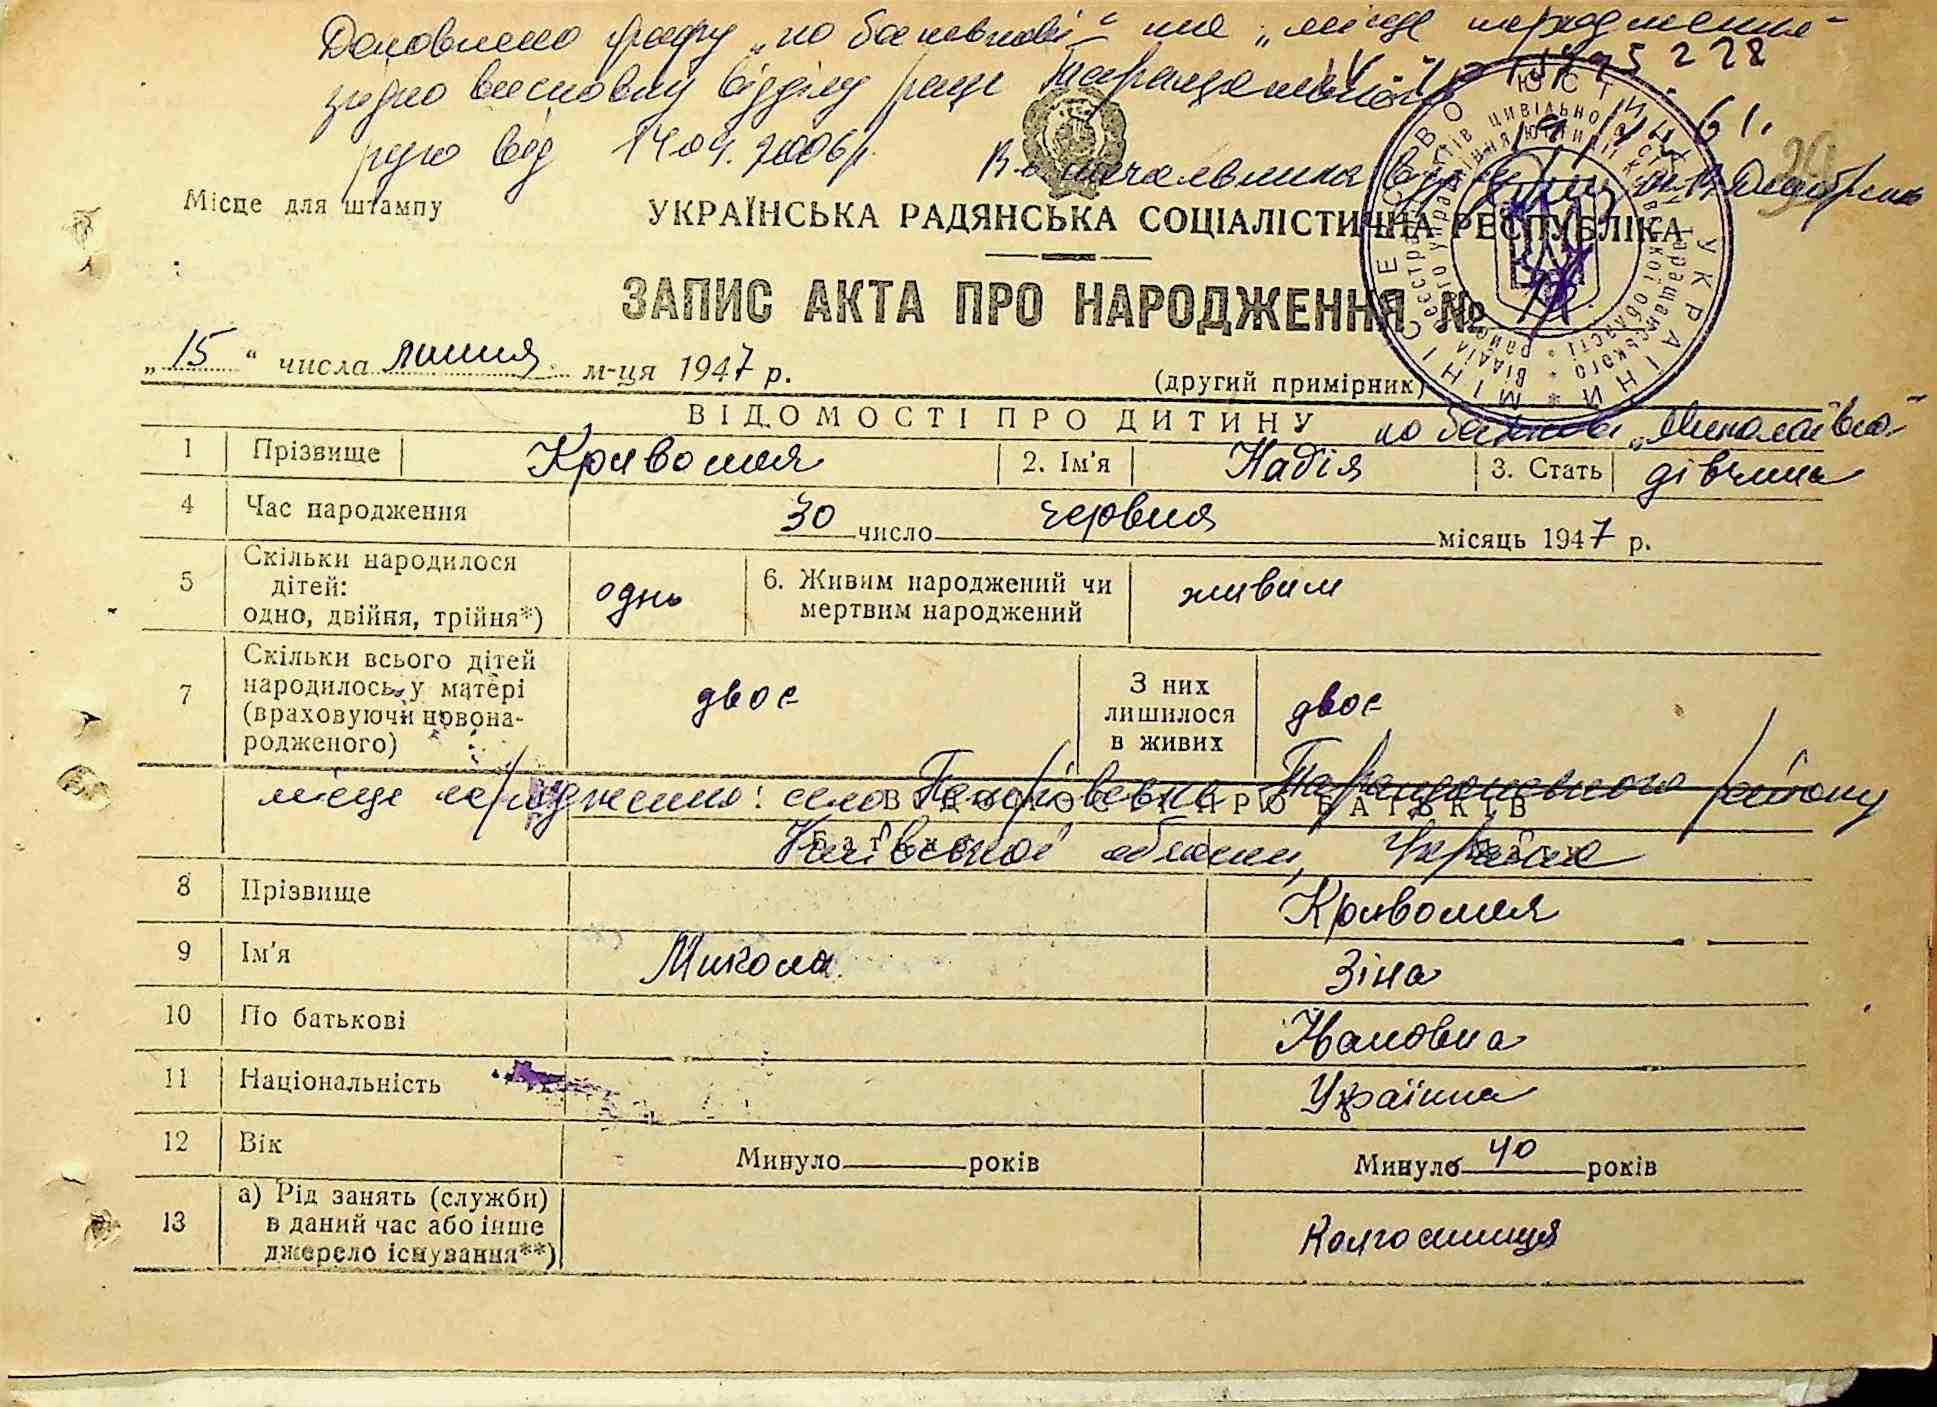 Доповнено графу „по батькові" та „місце народження"
згідно висновку відділу рацс Таращанського
рую від 14.04.2006р.
В.о. начальника
Місце для штампу
УКРАЇНСЬКА РАДЯНСЬКА СОЦІАЛІСТИЧНА РЕСПУБЛІКА
ЗАПИС АКТА ПРО НАРОДЖЕННЯ №
„15" числа липня м-ця 1947 р.
(другий примірник)
МІНІСТЕРСТВО ЮСТИЦІЇ УКРАЇНИ
ВІДОМОСТІ ПРО ДИТИНУ по батькові „Миколаївна"
1 Прізвище Кривошея 2. Ім'я Надія 3. Стать дівчина
4 Час народження 30 число червня місяць 1947 р.
5 Скільки народилося дітей: одно, двійня, трійня*) одно 6. Живим народжений чи мертвим народжений живим
7 Скільки всього дітей народилось у матері (враховуючи новонародженого) двоє З них лишилося в живих двоє
місце народження: село Петрівка Таращанського району
ВІДОМОСТІ ПРО БАТЬКІВ
Київської області, Україна
8 Прізвище Кривошея
9 Ім'я Микола Зіна
10 По батькові Івановна
11 Національність Українка
12 Вік Минуло років Минуло 40 років
13 а) Рід занять (служби) в даний час або інше джерело існування**) Колгоспниця